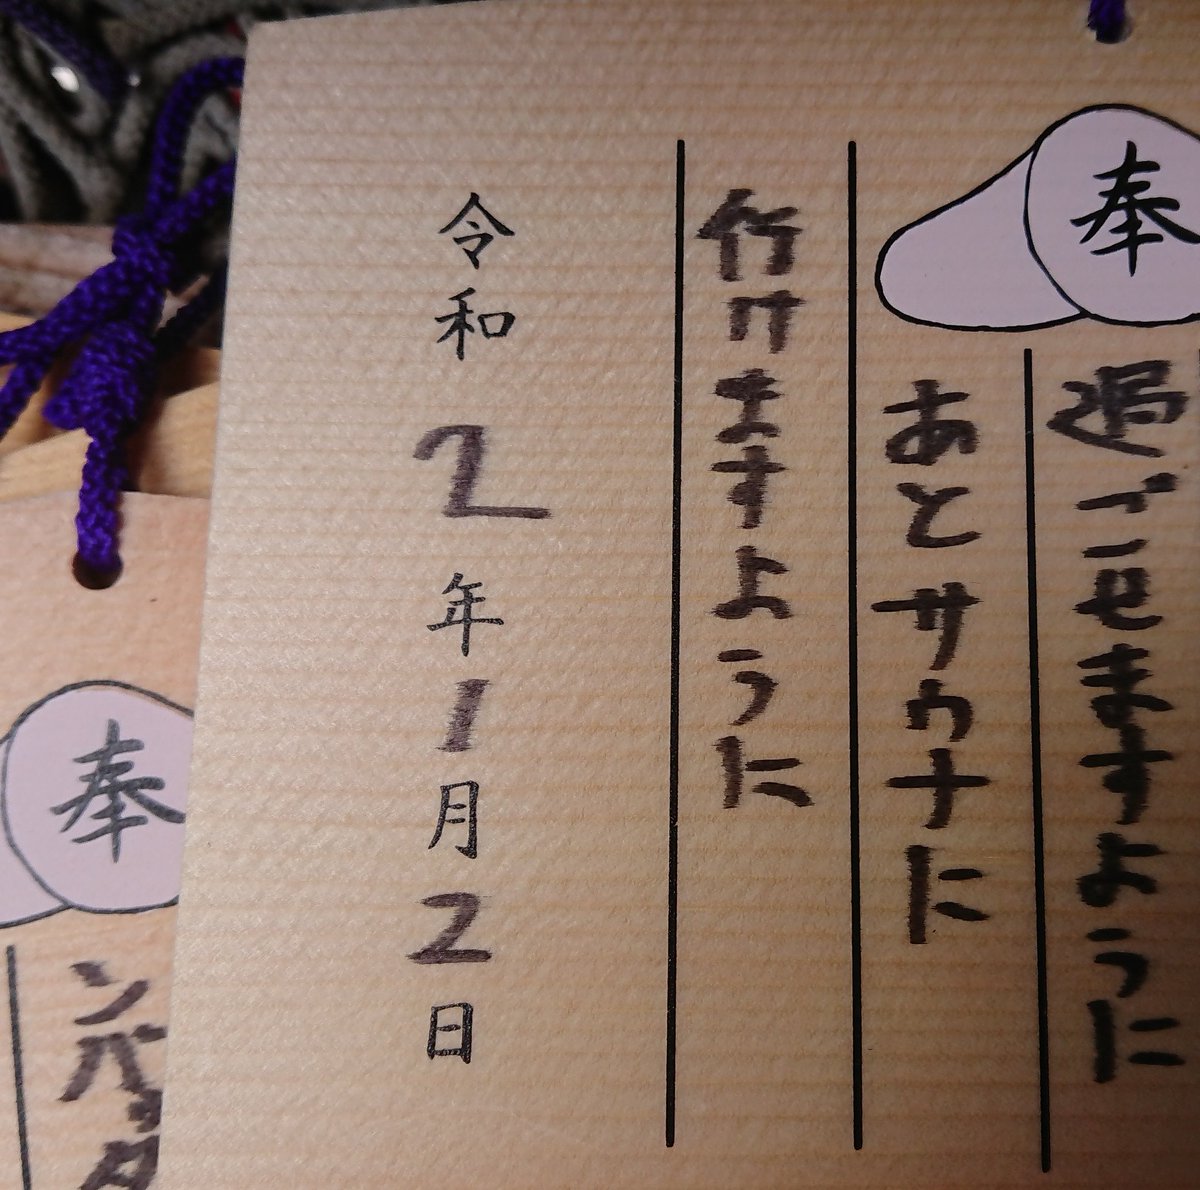 奉
過ごせますように
あとサウナに
行けますように
令和2年1月2日
奉
ンバッタ